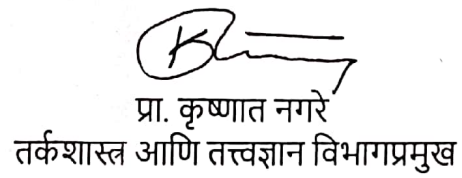 प्रा. कृष्णात नगरे
तर्कशास्त्र आणि तत्त्वज्ञान विभागप्रमुख